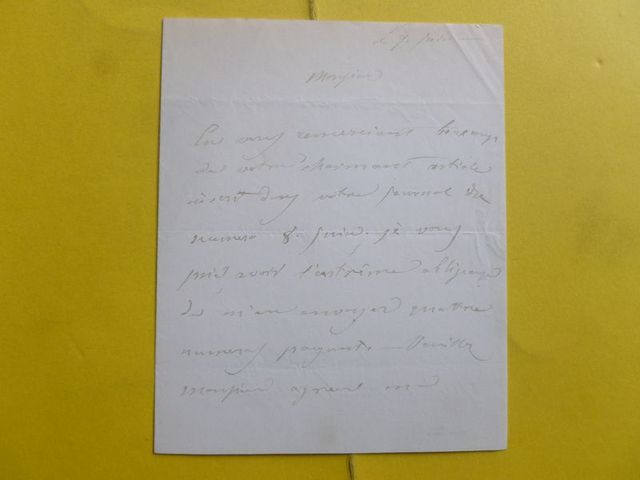 le 9. Juin
Monsieur
En vous remerciant beaucoup
de votre charmant article
inseré dans votre journal du
numero 8. Juin. je vous
prie avoir l'extrême obligeance
de m'en envoyer quattre
numeros payant. — Veuillez
Monsieur agréer mes